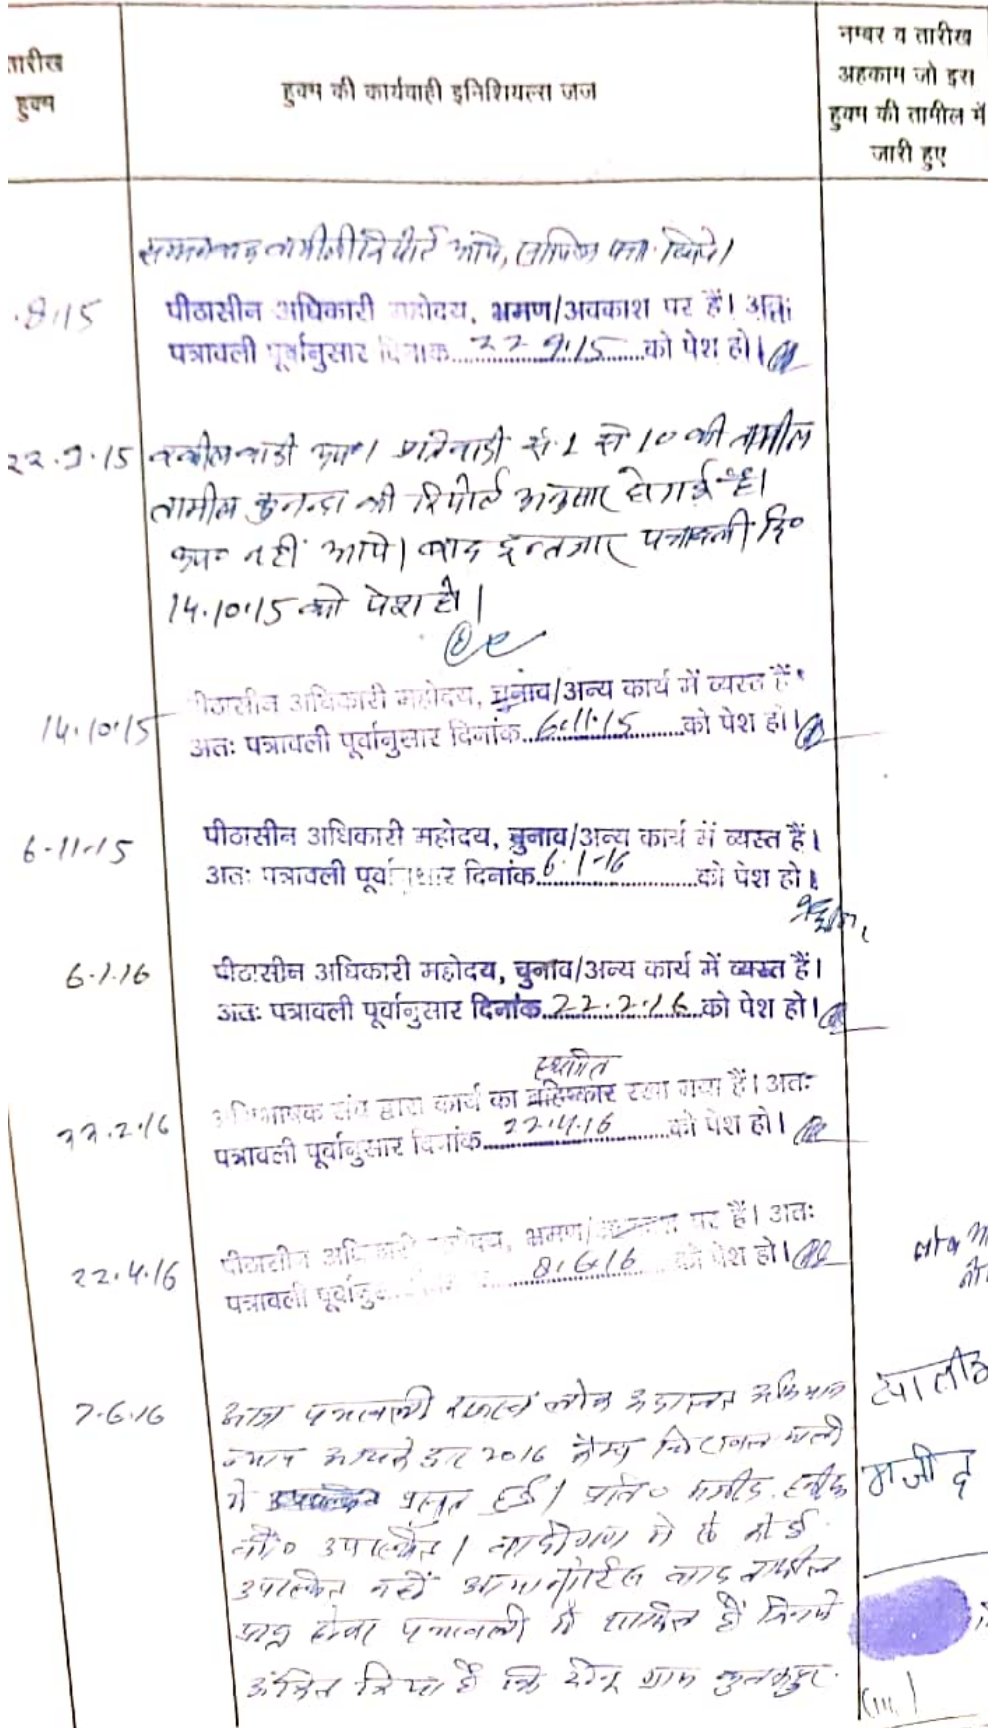 तारीख
हुक्म
हुक्म की कार्यवाही इनिशियल्स जज
नम्बर व तारीख
अहकाम जो इस
हुक्म की तामील में
जारी हुए
तामीली रिपोर्ट आये,
.8.15
पीठासीन अधिकारी महोदय, भ्रमण/अवकाश पर हैं। अतः
पत्रावली पूर्वानुसार दिनांक 22 9.15 को पेश हो।
22.9.15
वकील वादी उप०। प्रतिवादी सं. 1 से 10 की तामील
तामील कुनन्दा की रिपोर्ट अनुसार हो गई है।
उप० नहीं आये। बाद इन्तजार पत्रावली दि०
14.10.15 को पेश हो।
14.10.15
पीठासीन अधिकारी महोदय, चुनाव/अन्य कार्य में व्यस्त हैं।
अतः पत्रावली पूर्वानुसार दिनांक 6.11.15 को पेश हो।
6-11-15
पीठासीन अधिकारी महोदय, चुनाव/अन्य कार्य में व्यस्त हैं।
अतः पत्रावली पूर्वानुसार दिनांक 6-1-16 को पेश हो।
6.1.16
पीठासीन अधिकारी महोदय, चुनाव/अन्य कार्य में व्यस्त हैं।
अतः पत्रावली पूर्वानुसार दिनांक 22.2.16 को पेश हो।
स्थगित
22.2.16
अभिभाषक संघ द्वारा कार्य का बहिष्कार रखा गया हैं। अतः
पत्रावली पूर्वानुसार दिनांक 22.4.16 को पेश हो।
22.4.16
पीठासीन अधिकारी महोदय, भ्रमण/अवकाश पर हैं। अतः
पत्रावली पूर्वानुसार 8.6.16 को पेश हो।
7.6.16
आज पत्रावली राजस्व लोक अदालत अभियान
न्याय आपके द्वार 2016 कैम्प
में प्रस्तुत हुई। प्रति० मजीद
उपस्थित। वादीगण में से कोई
उपस्थित नहीं आया नोटिस बाद तामील
प्राप्त होकर पत्रावली में शामिल हैं जिसमे
अंकित किया है कि ग्राम
मजीद
(III)